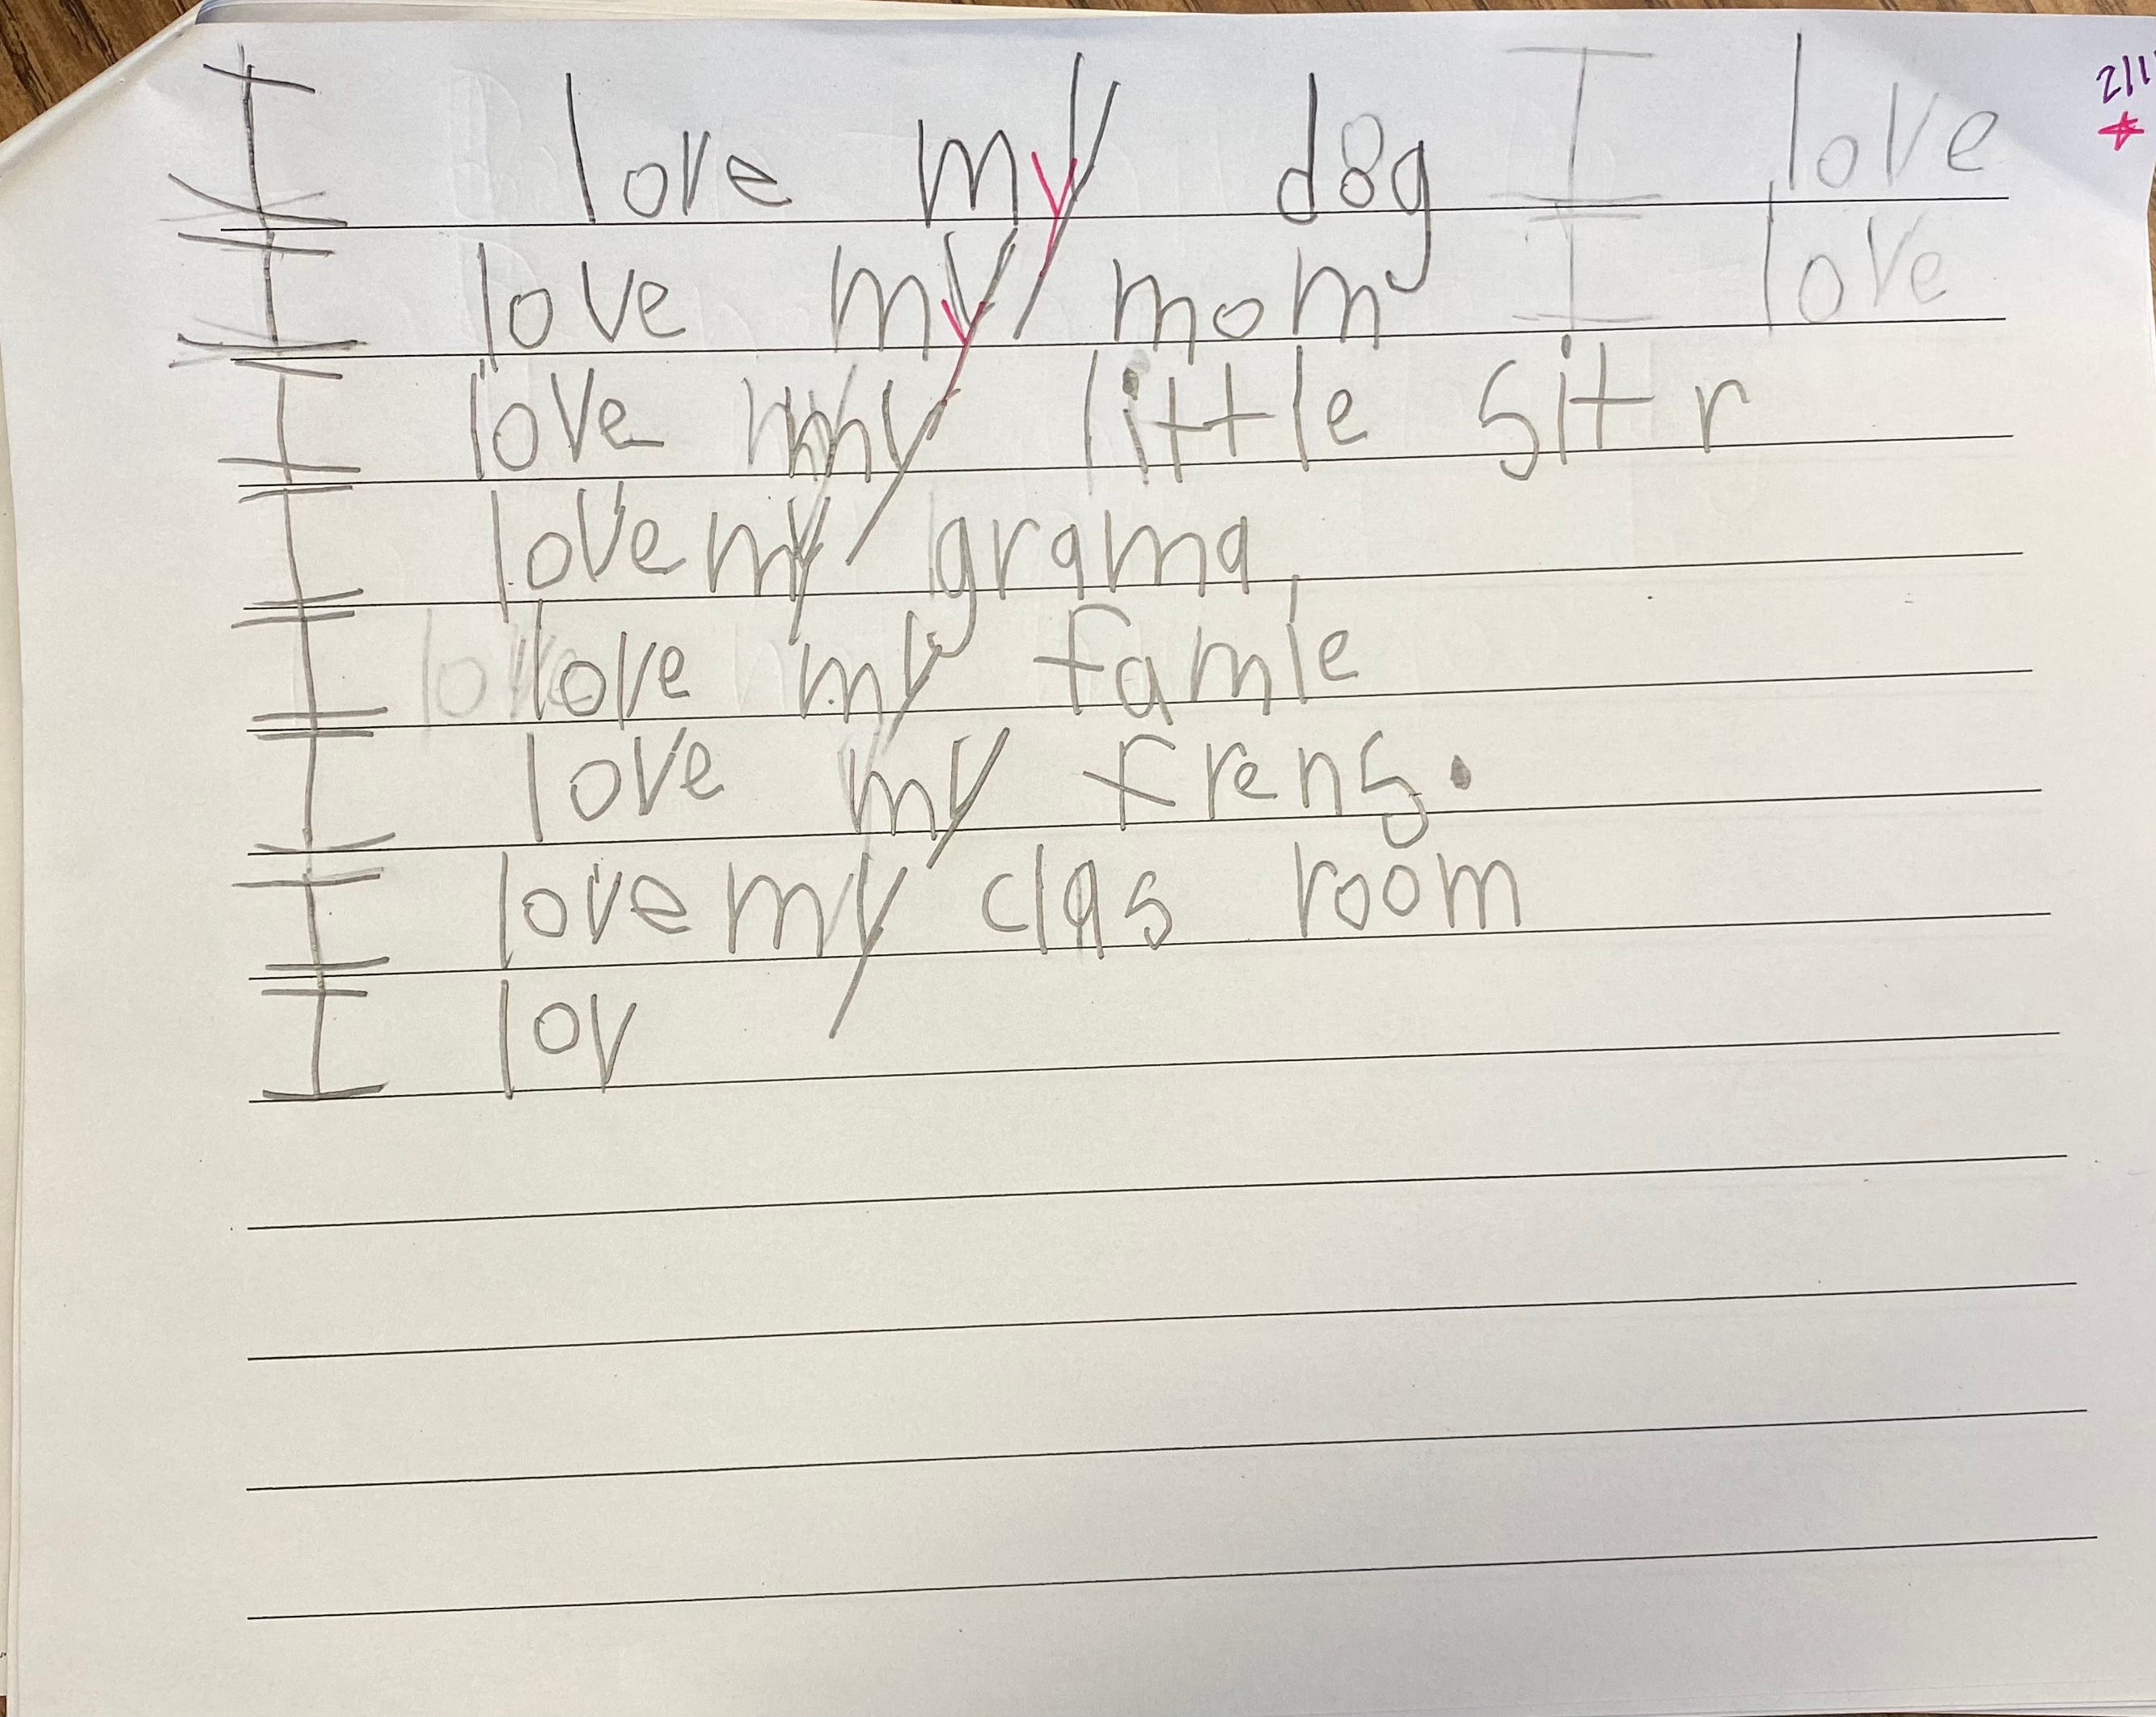 I love my dog I love
I love my mom I love
I love my little sitr
I love my grama
I love my famle
I love my frens.
I love my clas room
I lov